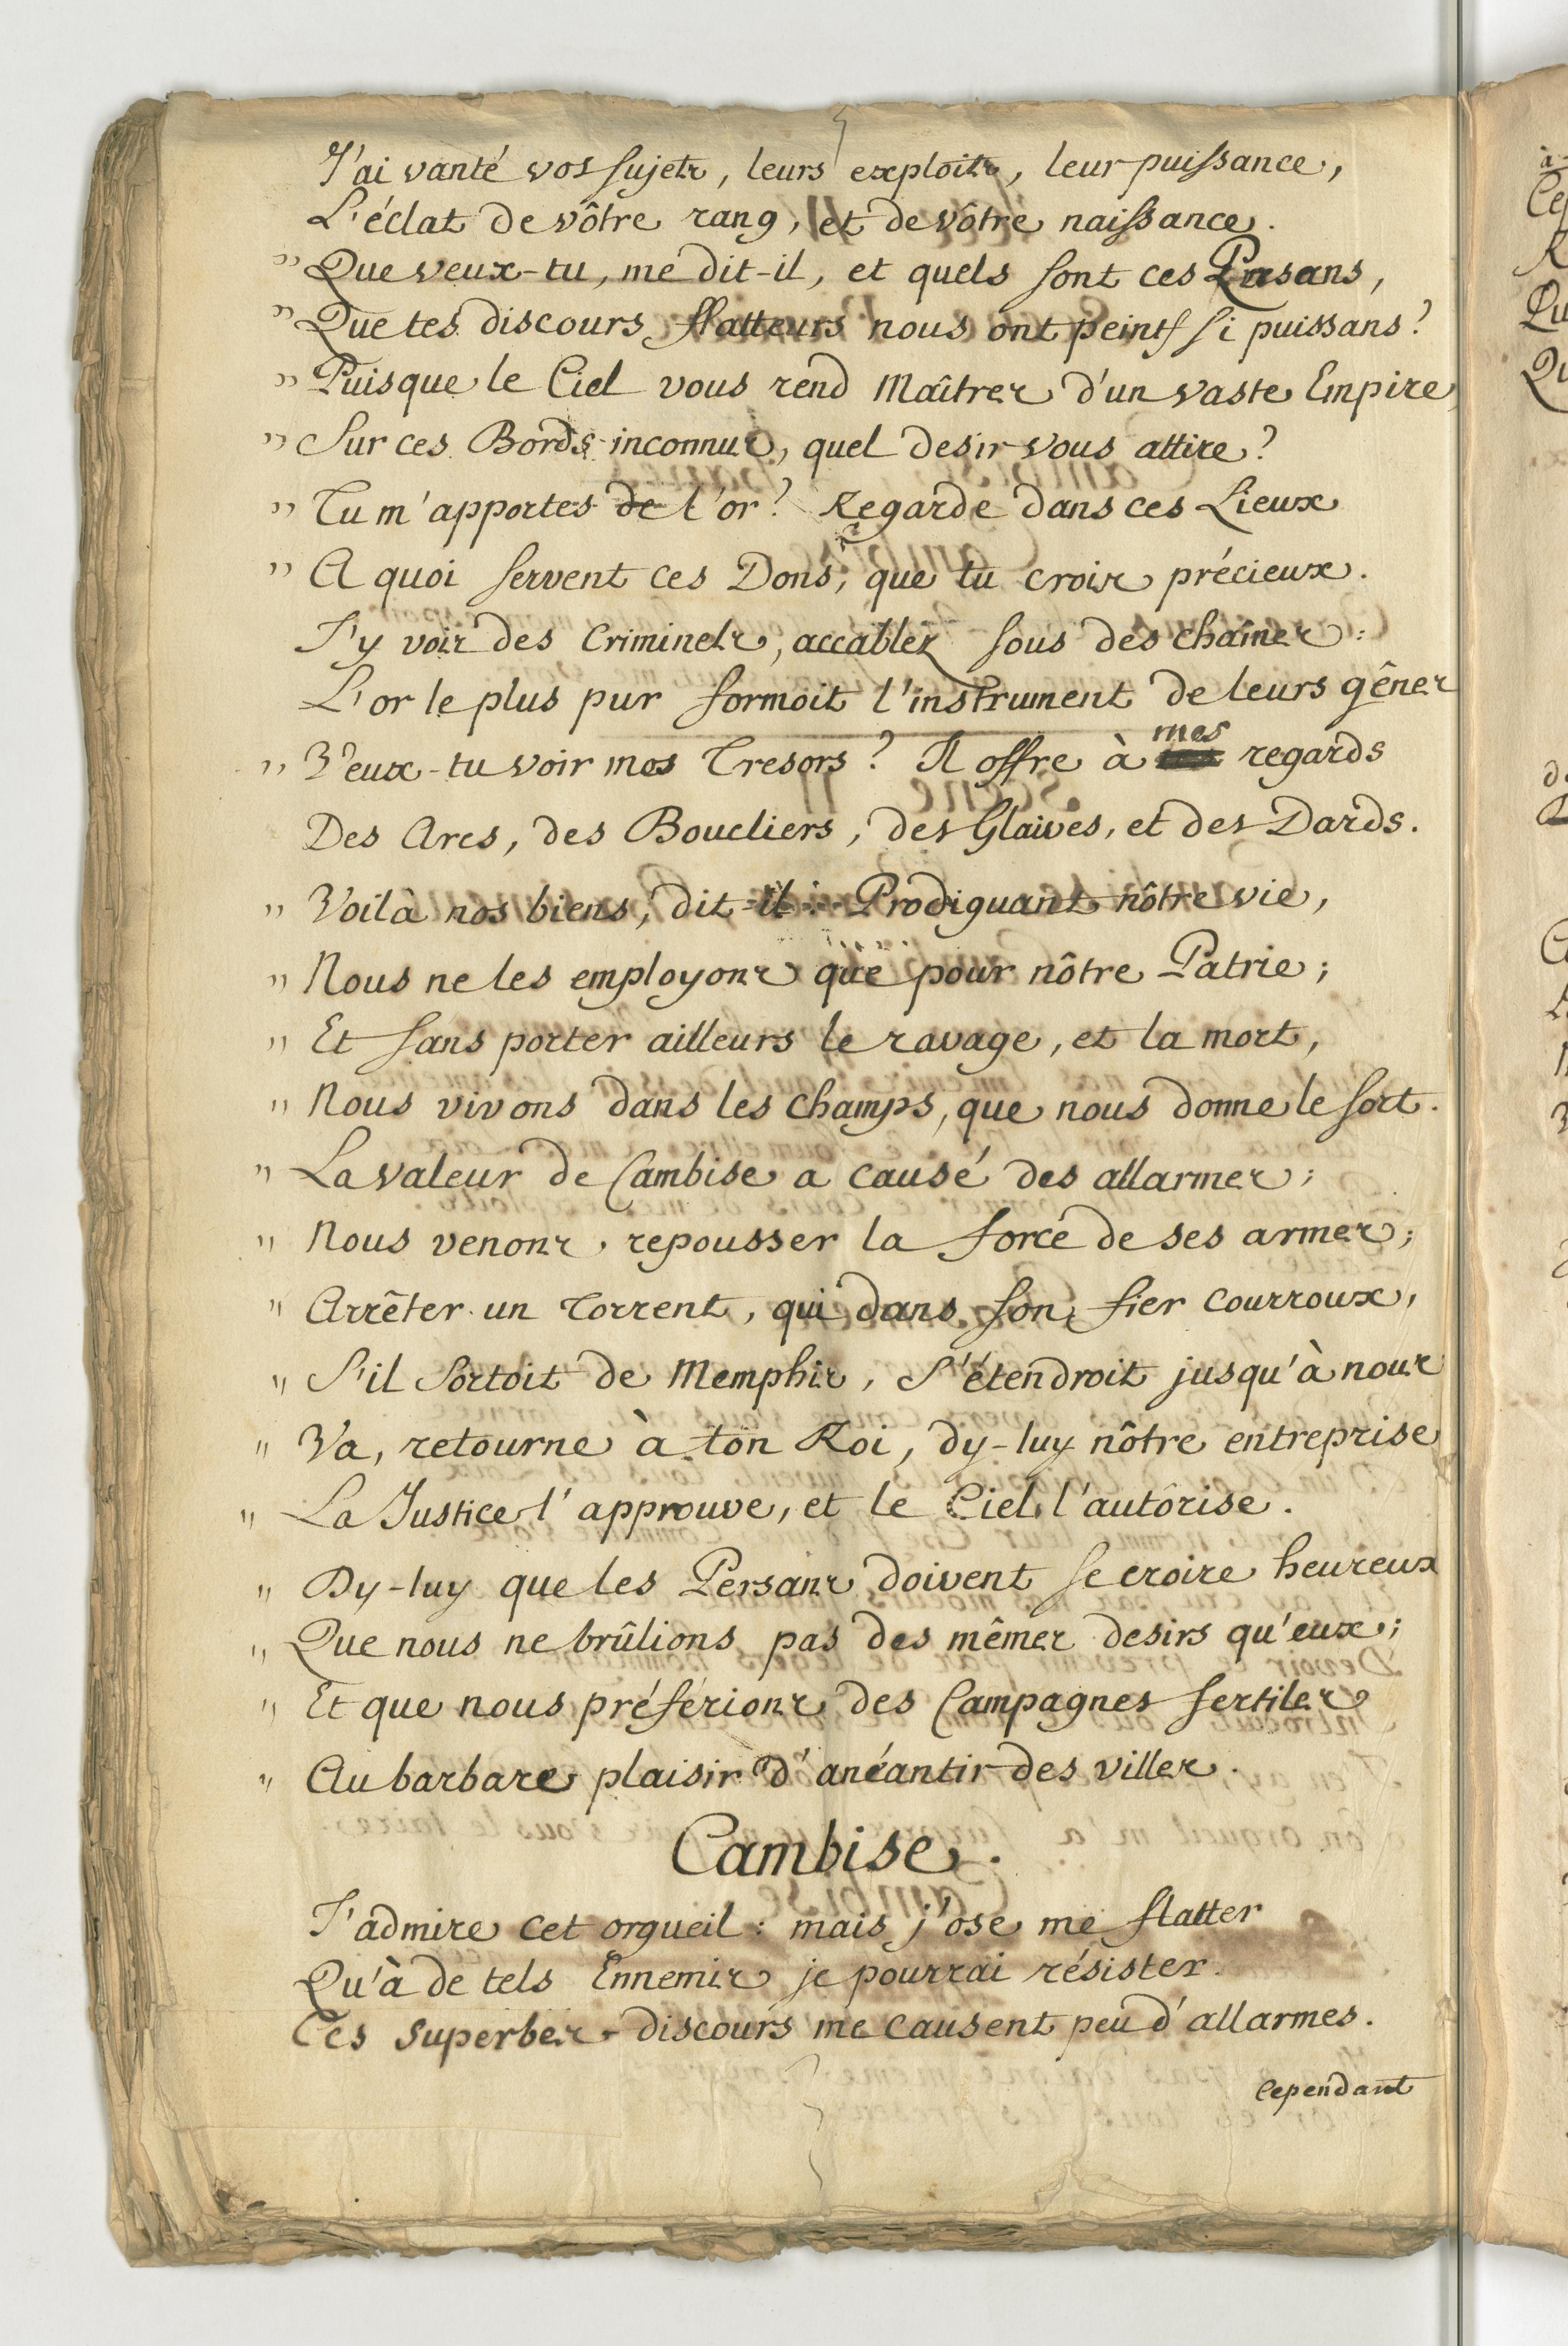 J'ai vanté vos sujets, leurs exploits, leur puissance,
L'éclat de vôtre rang, et de vôtre naissance.
" Que veux-tu, me dit-il, et quels sont ces Persans,
" Que tes discours flatteurs nous ont peints si puissans?
" Puisque le Ciel vous rend Maîtres d'un vaste Empire,
" Sur ces Bords inconnus, quel desir vous attire?
" Tu m'apportes de l'or? Regarde dans ces Lieux
" A quoi servent ces Dons, que tu crois précieux.
J'y vois des Criminels, accablez sous des chaînes:
L'or le plus pur formoit l'instrument de leurs gênes
" Veux-tu voir mes Tresors? Il offre à mes regards
Des Arcs, des Boucliers, des Glaives, et des Dards.
" Voilà nos biens, dit-il: Prodiguant nôtre vie,
" Nous ne les employons que pour nôtre Patrie;
" Et sans porter ailleurs le ravage, et la mort,
" Nous vivons dans les champs, que nous donne le sort.
" La valeur de Cambise a causé des allarmes;
" Nous venons, repousser la force de ses armes;
" Arrêter un Torrent, qui dans son fier courroux,
" S'il sortoit de Memphis, s'étendroit jusqu'à nous
" Va, retourne à ton Roi, dy-luy nôtre entreprise
" La Justice l'approuve, et le Ciel l'autôrise.
" Dy-luy que les Persans doivent se croire heureux
" Que nous ne brûlions pas des mêmes desirs qu'eux;
" Et que nous préférions des Campagnes fertiles
" Au barbare plaisir d'anéantir des villes.
Cambise.
J'admire cet orgueil: mais j'ose me flatter
Qu'à de tels Ennemis je pourrai résister.
Ces superbes discours me causent peu d'allarmes.
Cependant